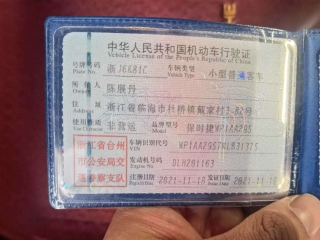 中华人民共和国机动车行驶证
Vehicle License of the People's Republic of China
号牌号码 浙J6K81C 车辆类型 小型普通客车
Plate No. Vehicle Type
所有人 陈展丹
Owner
住址 浙江省临海市杜桥镇戴家村3-82号
Address
使用性质 非营运 品牌型号 保时捷WP1AA295
Use Character Model
浙江省台州 车辆识别代号 WP1AA2957MLB31375
市公安局交 VIN
通警察支队 发动机号码 DLH201163
Engine No.
注册日期 2021-11-10 发证日期 2021-11-10